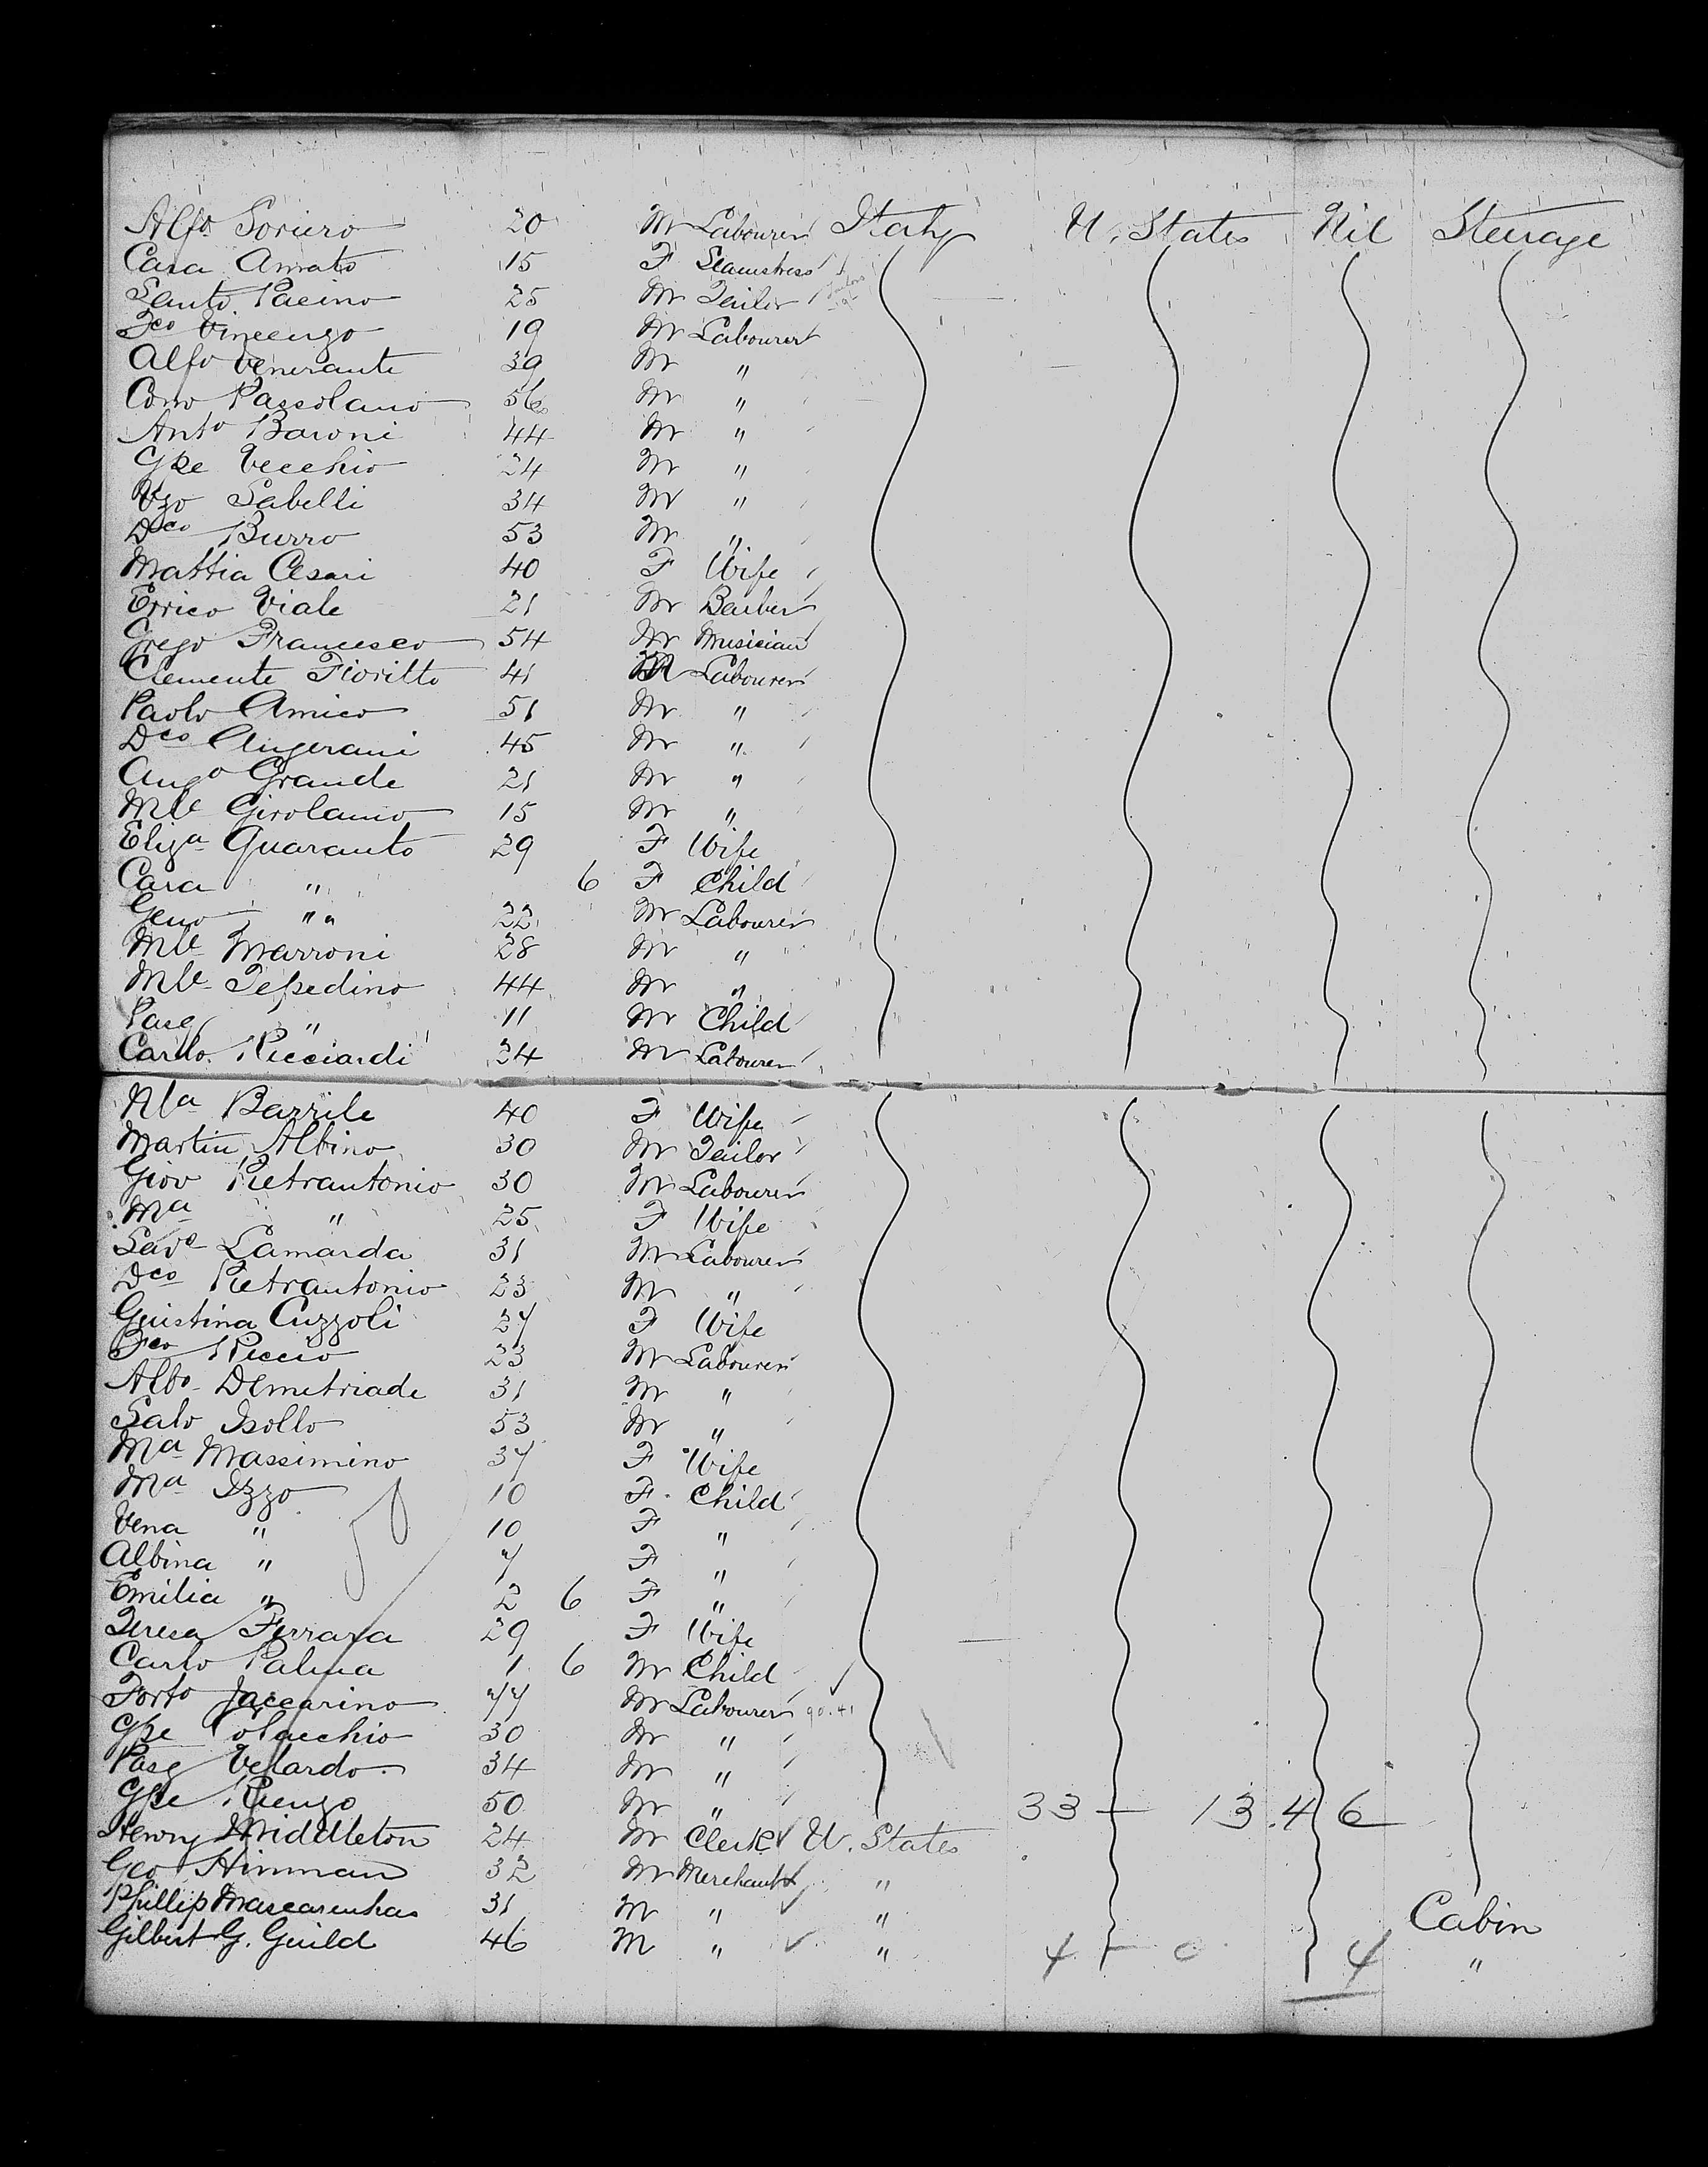 Alfo Soriero 20 M Labourer Italy U. States Nil Steerage
Cara Amato 15 F Seamstress
Santo Pacino 25 M Tailor
Fco Vincenzo 19 M Labourer
Alfo Venerante 39 M "
Cono Passolano 56 M "
Anto Baroni 44 M "
Gpe Vecchio 24 M "
Vzo Sabelli 34 M "
Dco Burro 53 M "
Mattia Cesari 40 F Wife
Errico Viale 21 M Barber
Grego Francesco 54 M Musician
Clemente Fioritto 41 M Labourer
Paolo Amico 51 M "
Dco Angerani 45 M "
Ango Grande 21 M "
Mle Girolamo 15 M "
Eliza Quaranto 29 F Wife
Cara " 6 F Child
Geno " " 22 M Labourer
Mle Marroni 28 M "
Mle Tepedino 44 M "
Pasq " 11 M Child
Carlo Ricciardi 24 M Labourer
Ma Barrile 40 F Wife
Martin Albino 30 M Tailor
Giov Pietrantonio 30 M Labourer
Ma " 25 F Wife
Save Lamarda 31 M Labourer
Dco Pietrantonio 23 M "
Giustina Cuzzoli 27 F Wife
Fco Riccio 23 M Labourer
Albo Demetriade 31 M "
Salv Isollo 53 M "
Ma Massimino 37 F Wife
Ma Izzo 10 F Child
Vena " 10 F "
Albina " 7 F "
Emilia " 2 6 F "
Teresa Ferrara 29 F Wife
Carlo Palma 1 6 M Child
Forto Jaccarino 77 M Labourer
Gpe Volacchio 30 M "
Pasq Velardo 34 M "
Gpe Rienzo 50 M " 33 — 13.46
Henry Middleton 24 M Clerk U. States
Geo Hinman 32 M Merchant "
Phillip Mascarenhas 31 M " " Cabin
Gilbert G. Guild 46 M " " 4 — 0 4 "